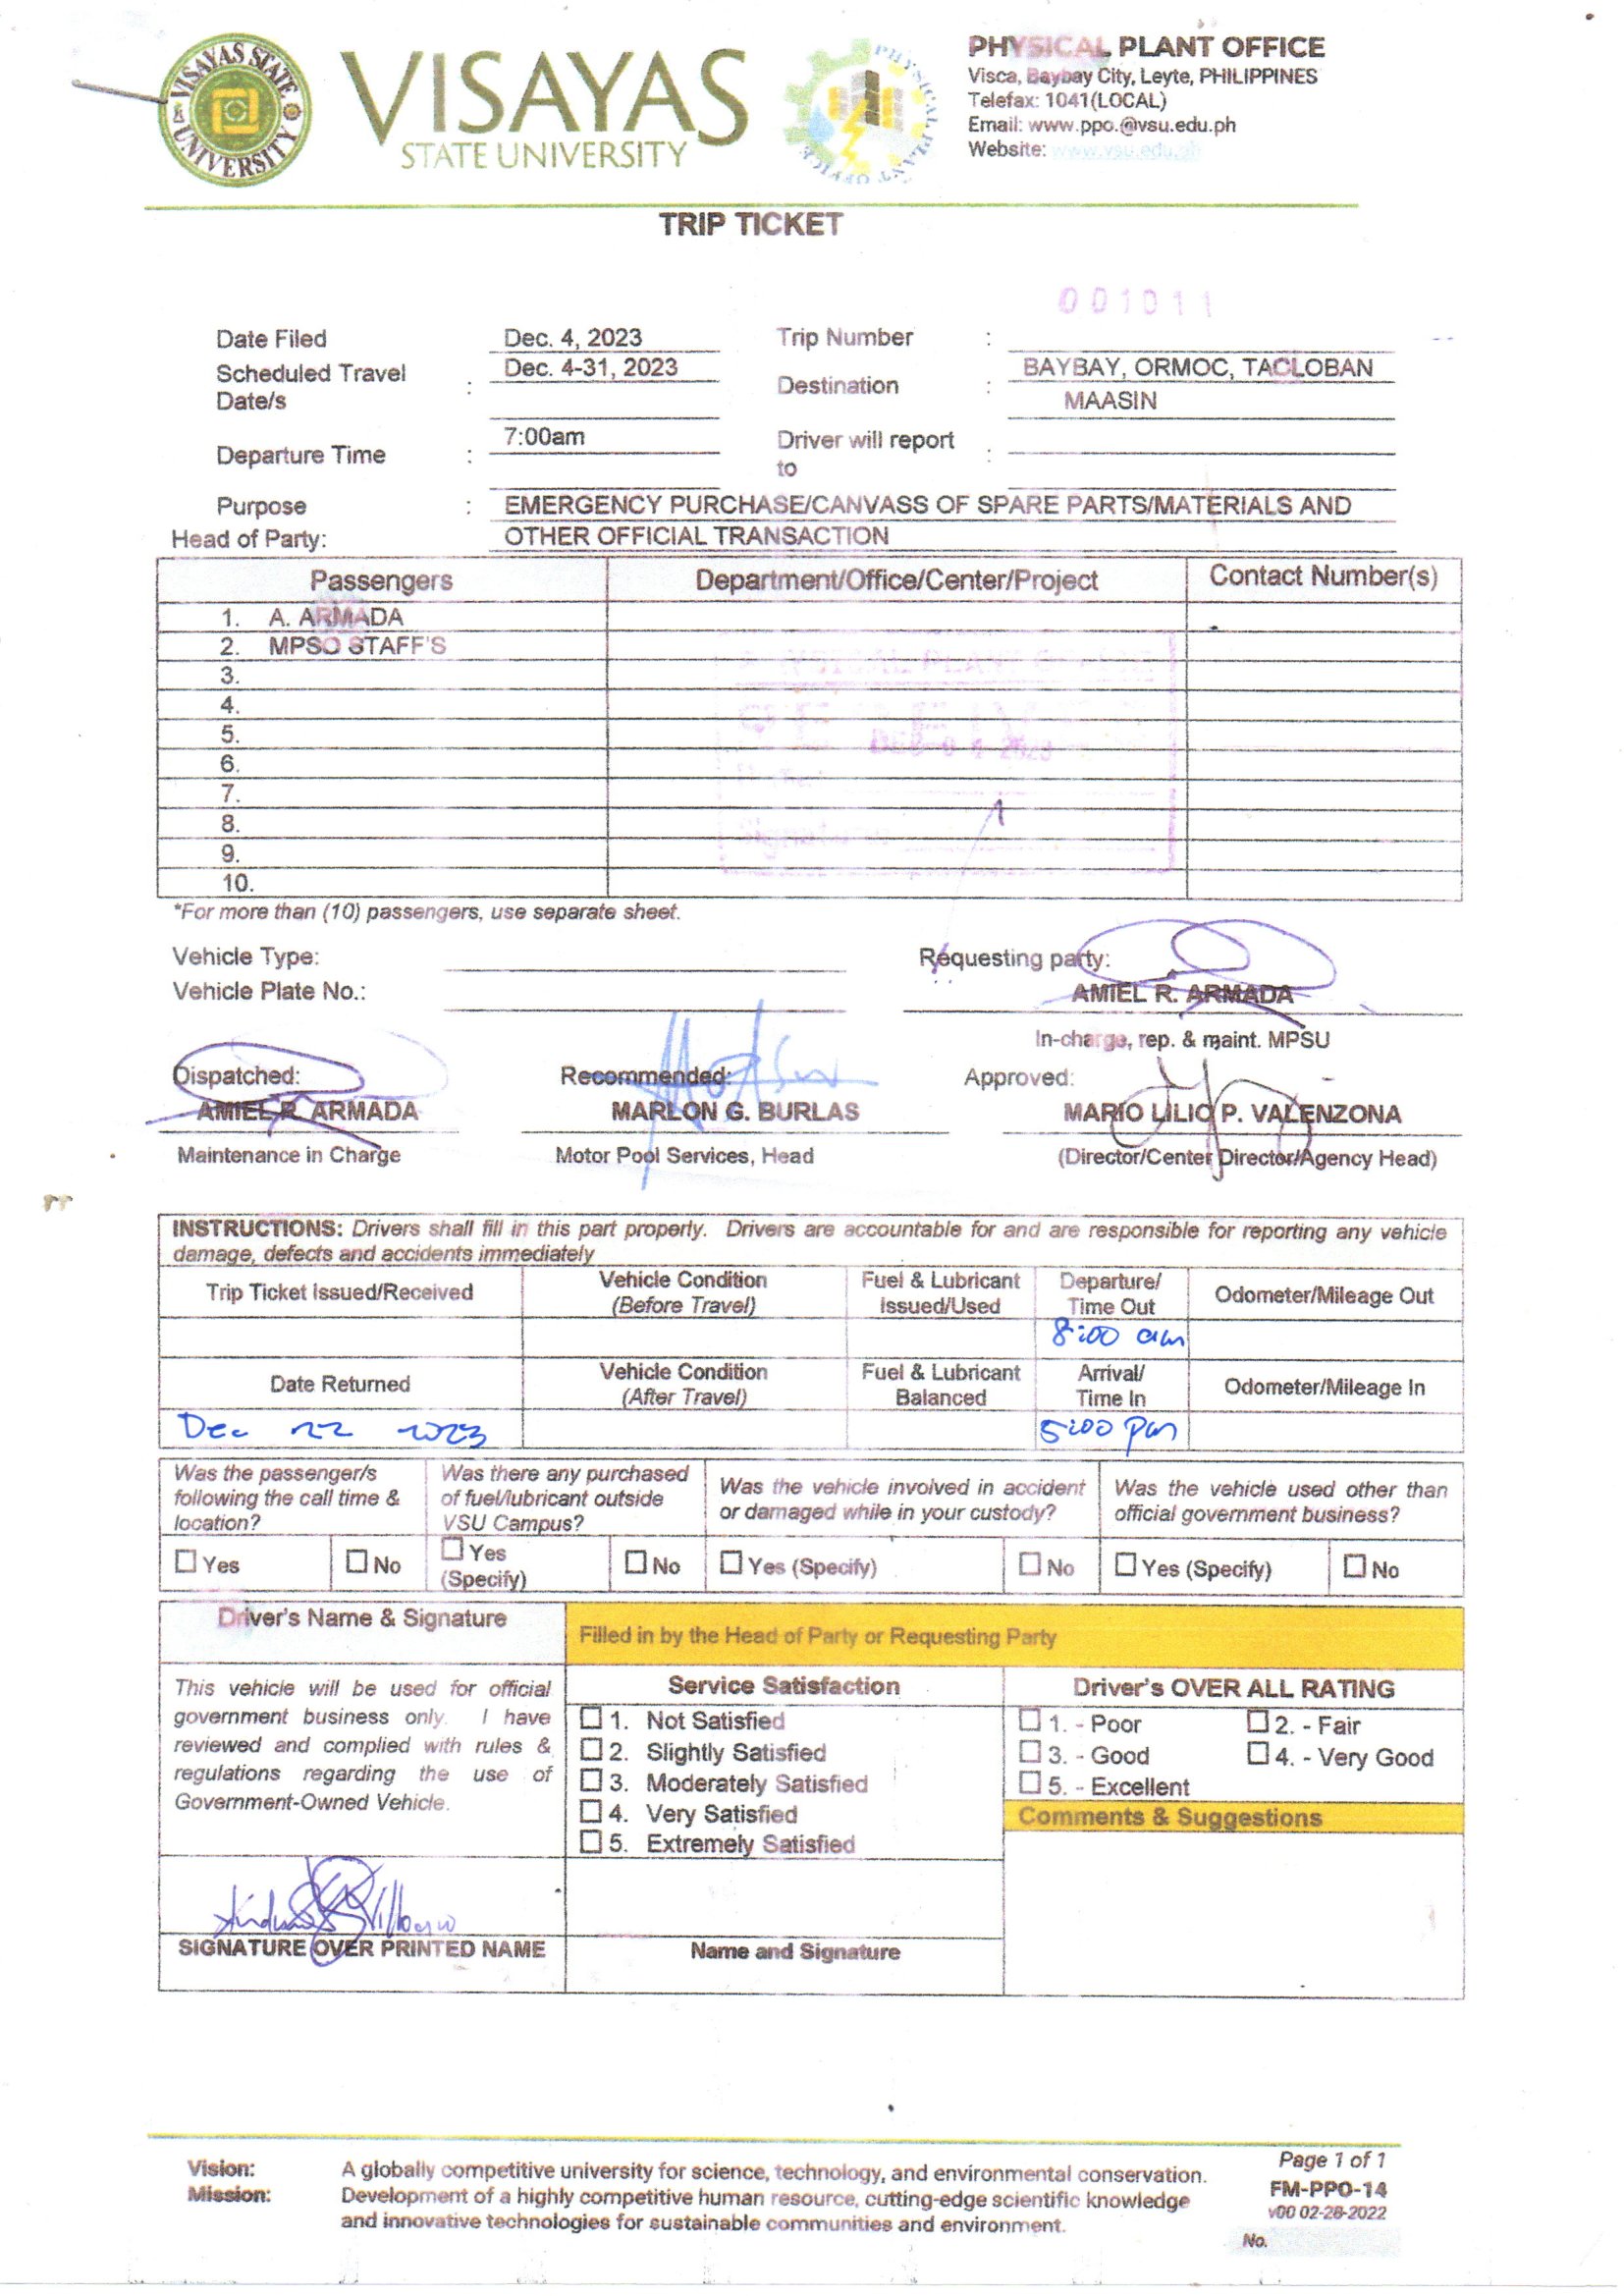 VISAYAS STATE UNIVERSITY
VISAYAS
STATE UNIVERSITY
PHYSICAL PLANT OFFICE
PHYSICAL PLANT OFFICE
Visca, Baybay City, Leyte, PHILIPPINES
Telefax: 1041(LOCAL)
Email: www.ppo.@vsu.edu.ph
Website: www.vsu.edu.ph
TRIP TICKET
001011
Date Filed Dec. 4, 2023 Trip Number :
Scheduled Travel Date/s : Dec. 4-31, 2023 Destination : BAYBAY, ORMOC, TACLOBAN
MAASIN
Departure Time : 7:00am Driver will report to :
Purpose : EMERGENCY PURCHASE/CANVASS OF SPARE PARTS/MATERIALS AND
Head of Party: OTHER OFFICIAL TRANSACTION
Passengers Department/Office/Center/Project Contact Number(s)
1. A. ARMADA
2. MPSO STAFF'S
3.
4.
5.
6.
7.
8.
9.
10.
DEC 04 2023
*For more than (10) passengers, use separate sheet.
Vehicle Type: Requesting party:
Vehicle Plate No.: AMIEL R. ARMADA
In-charge, rep. & maint. MPSU
Dispatched: Recommended: Approved:
AMIEL R. ARMADA MARLON G. BURLAS MARIO LILIO P. VALENZONA
Maintenance in Charge Motor Pool Services, Head (Director/Center Director/Agency Head)
INSTRUCTIONS: Drivers shall fill in this part properly. Drivers are accountable for and are responsible for reporting any vehicle
damage, defects and accidents immediately
Trip Ticket Issued/Received Vehicle Condition (Before Travel) Fuel & Lubricant Issued/Used Departure/ Time Out Odometer/Mileage Out
8:00 am
Date Returned Vehicle Condition (After Travel) Fuel & Lubricant Balanced Arrival/ Time In Odometer/Mileage In
Dec 22 2023 5:00 pm
Was the passenger/s following the call time & location? Was there any purchased of fuel/lubricant outside VSU Campus? Was the vehicle involved in accident or damaged while in your custody? Was the vehicle used other than official government business?
Yes No Yes (Specify) No Yes (Specify) No Yes (Specify) No
Driver's Name & Signature
Filled in by the Head of Party or Requesting Party
This vehicle will be used for official
government business only. I have
reviewed and complied with rules &
regulations regarding the use of
Government-Owned Vehicle.
Service Satisfaction
1. Not Satisfied
2. Slightly Satisfied
3. Moderately Satisfied
4. Very Satisfied
5. Extremely Satisfied
Driver's OVER ALL RATING
1. - Poor 2. - Fair
3. - Good 4. - Very Good
5. - Excellent
Comments & Suggestions
SIGNATURE OVER PRINTED NAME Name and Signature
Vision: A globally competitive university for science, technology, and environmental conservation.
Mission: Development of a highly competitive human resource, cutting-edge scientific knowledge
and innovative technologies for sustainable communities and environment.
Page 1 of 1
FM-PPO-14
v00 02-28-2022
No.